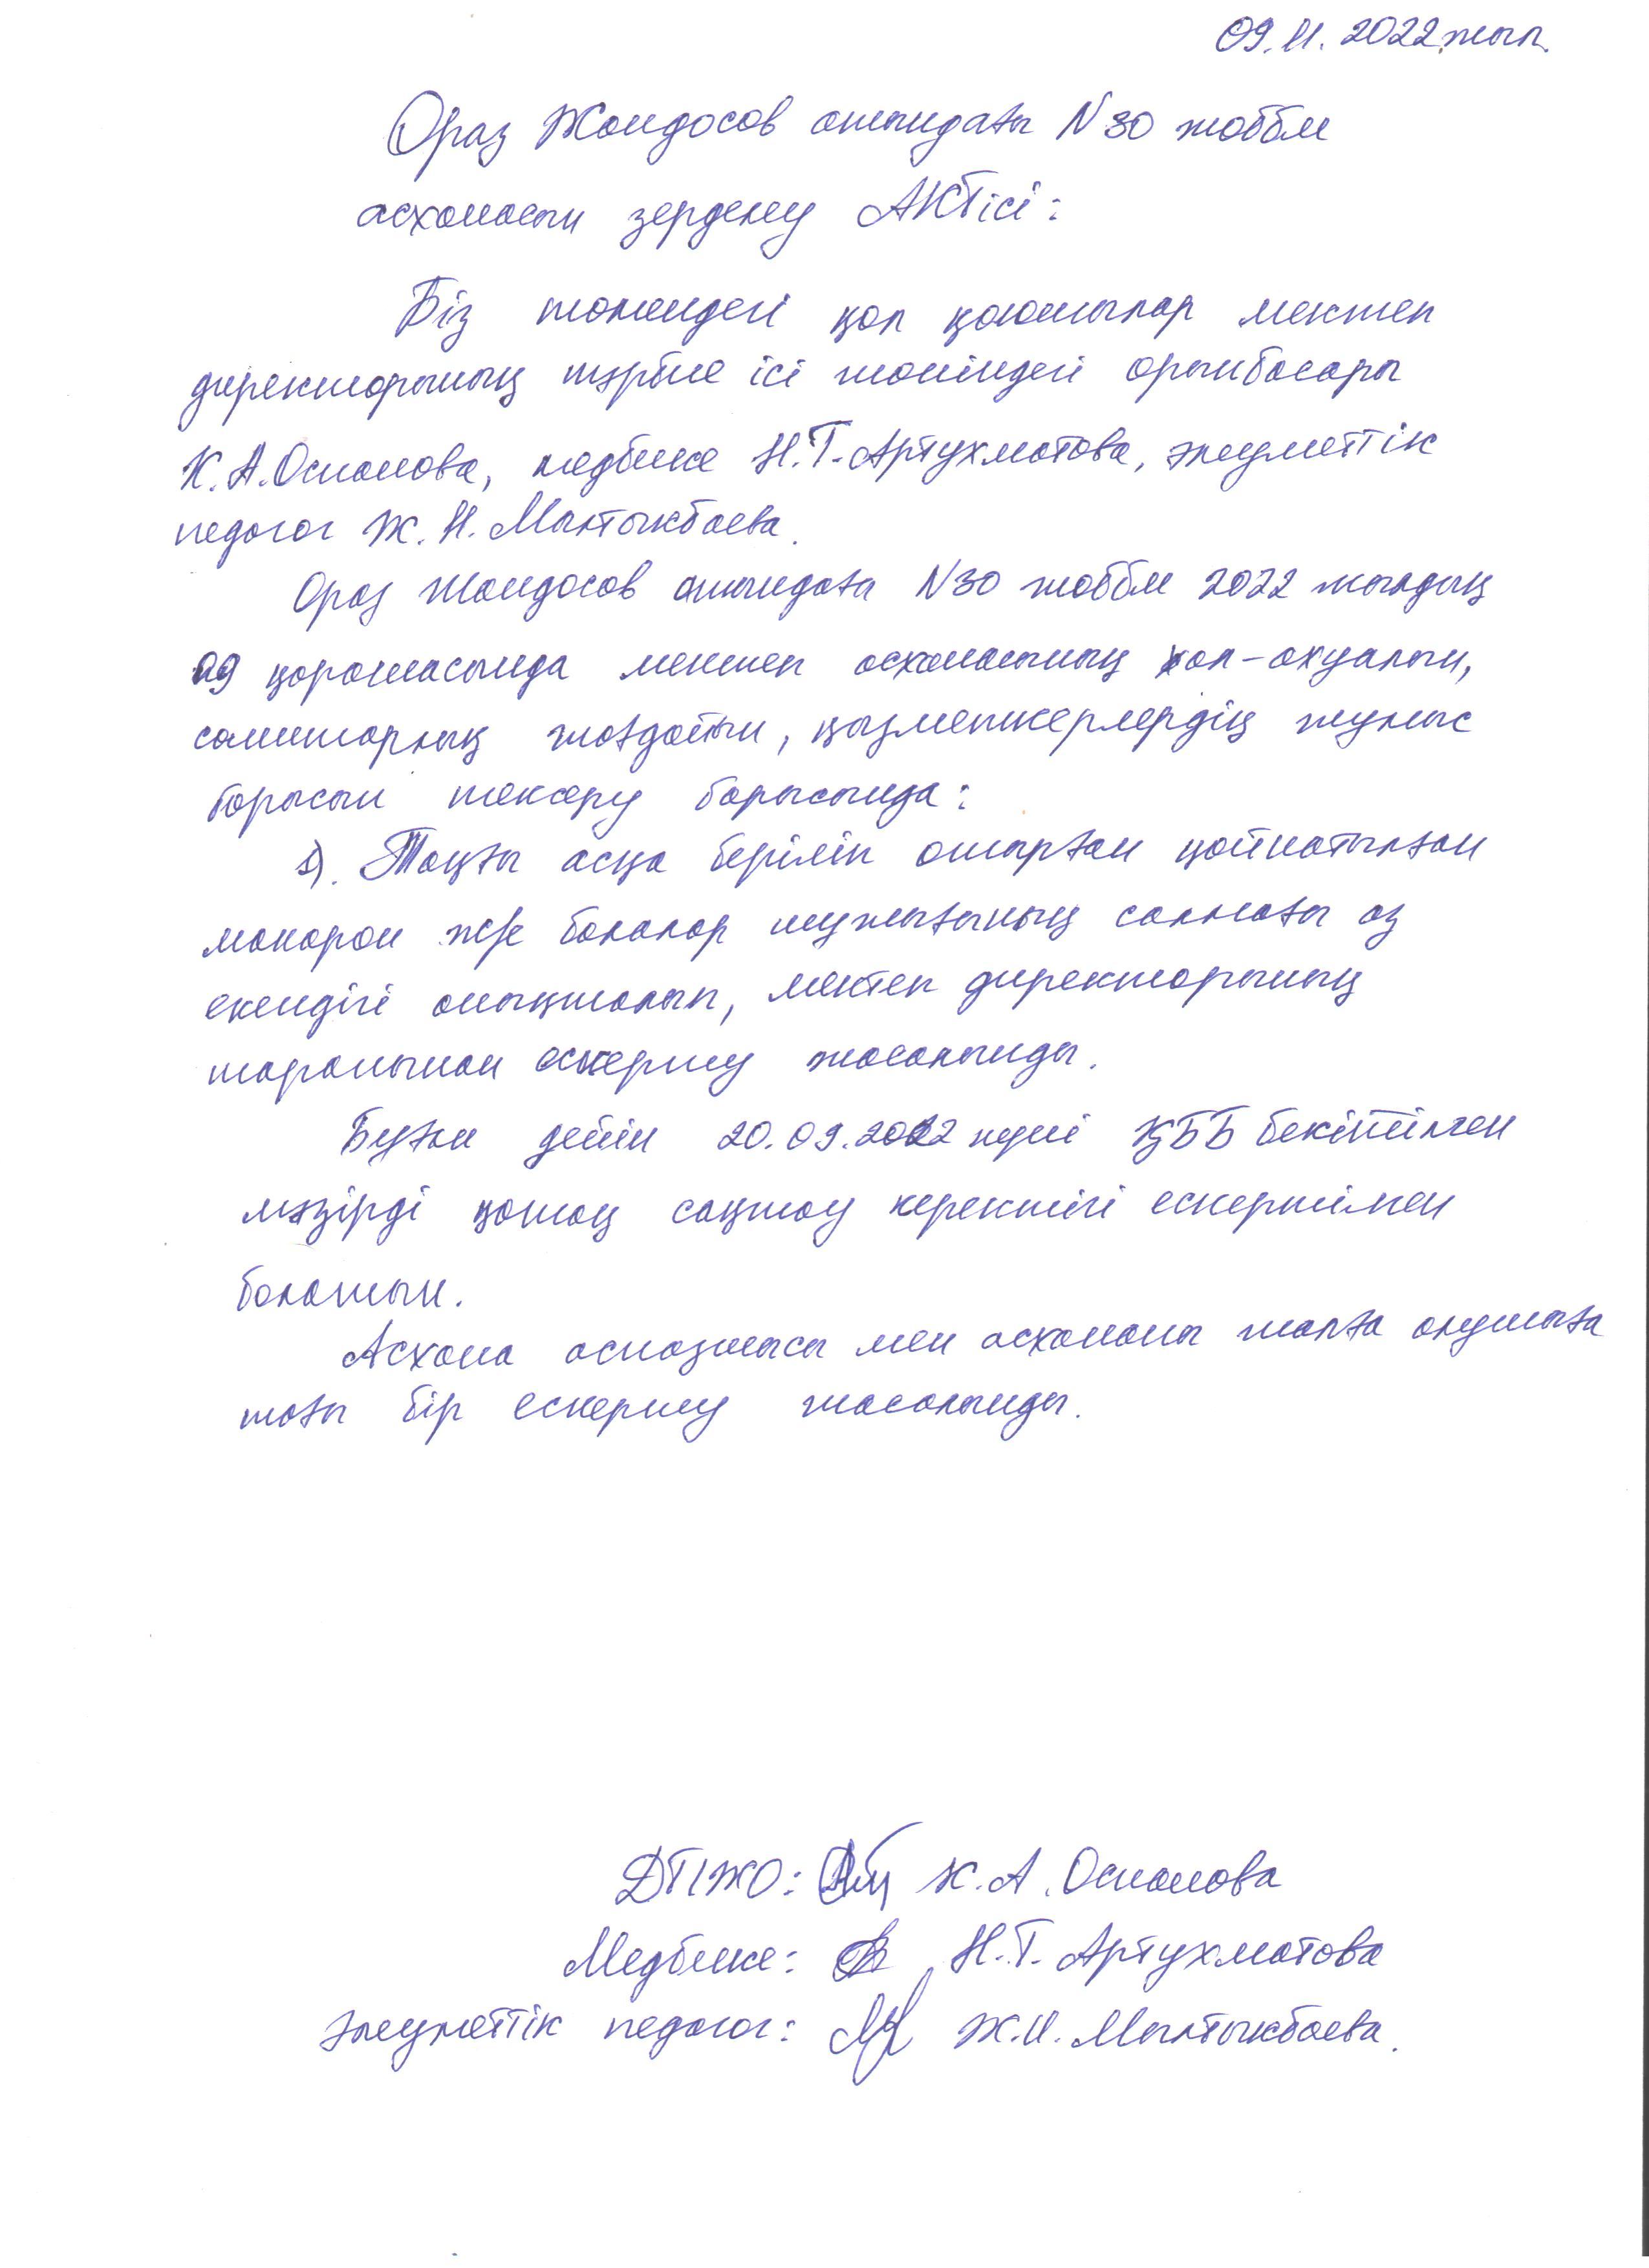 09.11.2022 жыл.
Ораз Жандосов атындағы N30 жоббм
асханасын зерделеу АКТісі:
Біз төмендегі қол қоюшылар мектеп
директорының тәрбие ісі жөніндегі орынбасары
К.А.Оспанова, медбике Н.Т.Артухматова, әлеуметтік
педагог Ж.Н.Мылтыкбаева.
Ораз Жандосов атындағы N30 жоббм 2022 жылдың
09 қарашасында мектеп асханасының хал-ахуалын,
санитарлық жағдайын, қызметкерлердің жұмыс
барысын тексеру барысында:
1). Таңғы асқа беріліп отырған қайнатылған
макарон ж/е балалар шұжығының салмағы аз
екендігі анықталып, мектеп директорының
тарапынан ескерту жасалынды.
Бұған дейін 20.09.2022 күні ҚББ бекітілген
мәзірді қатаң сақтау керектігі ескертілген
болатын.
Асхана аспазшысы мен асхананы жалға алушыға
тағы бір ескерту жасалынды.
ДТІЖО: К.А.Оспанова
Медбике: Н.Т.Артухматова
Әлеуметтік педагог: Ж.Н.Мылтыкбаева.